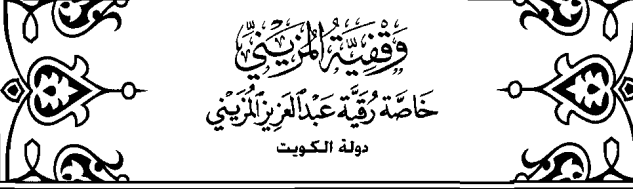 وَقْفِيَّةُ المُزَيْنِيِّ
خَاصَّة رُقَيَّة عَبْدِ العَزِيزِ المُزَيْنِي
دولة الكويت